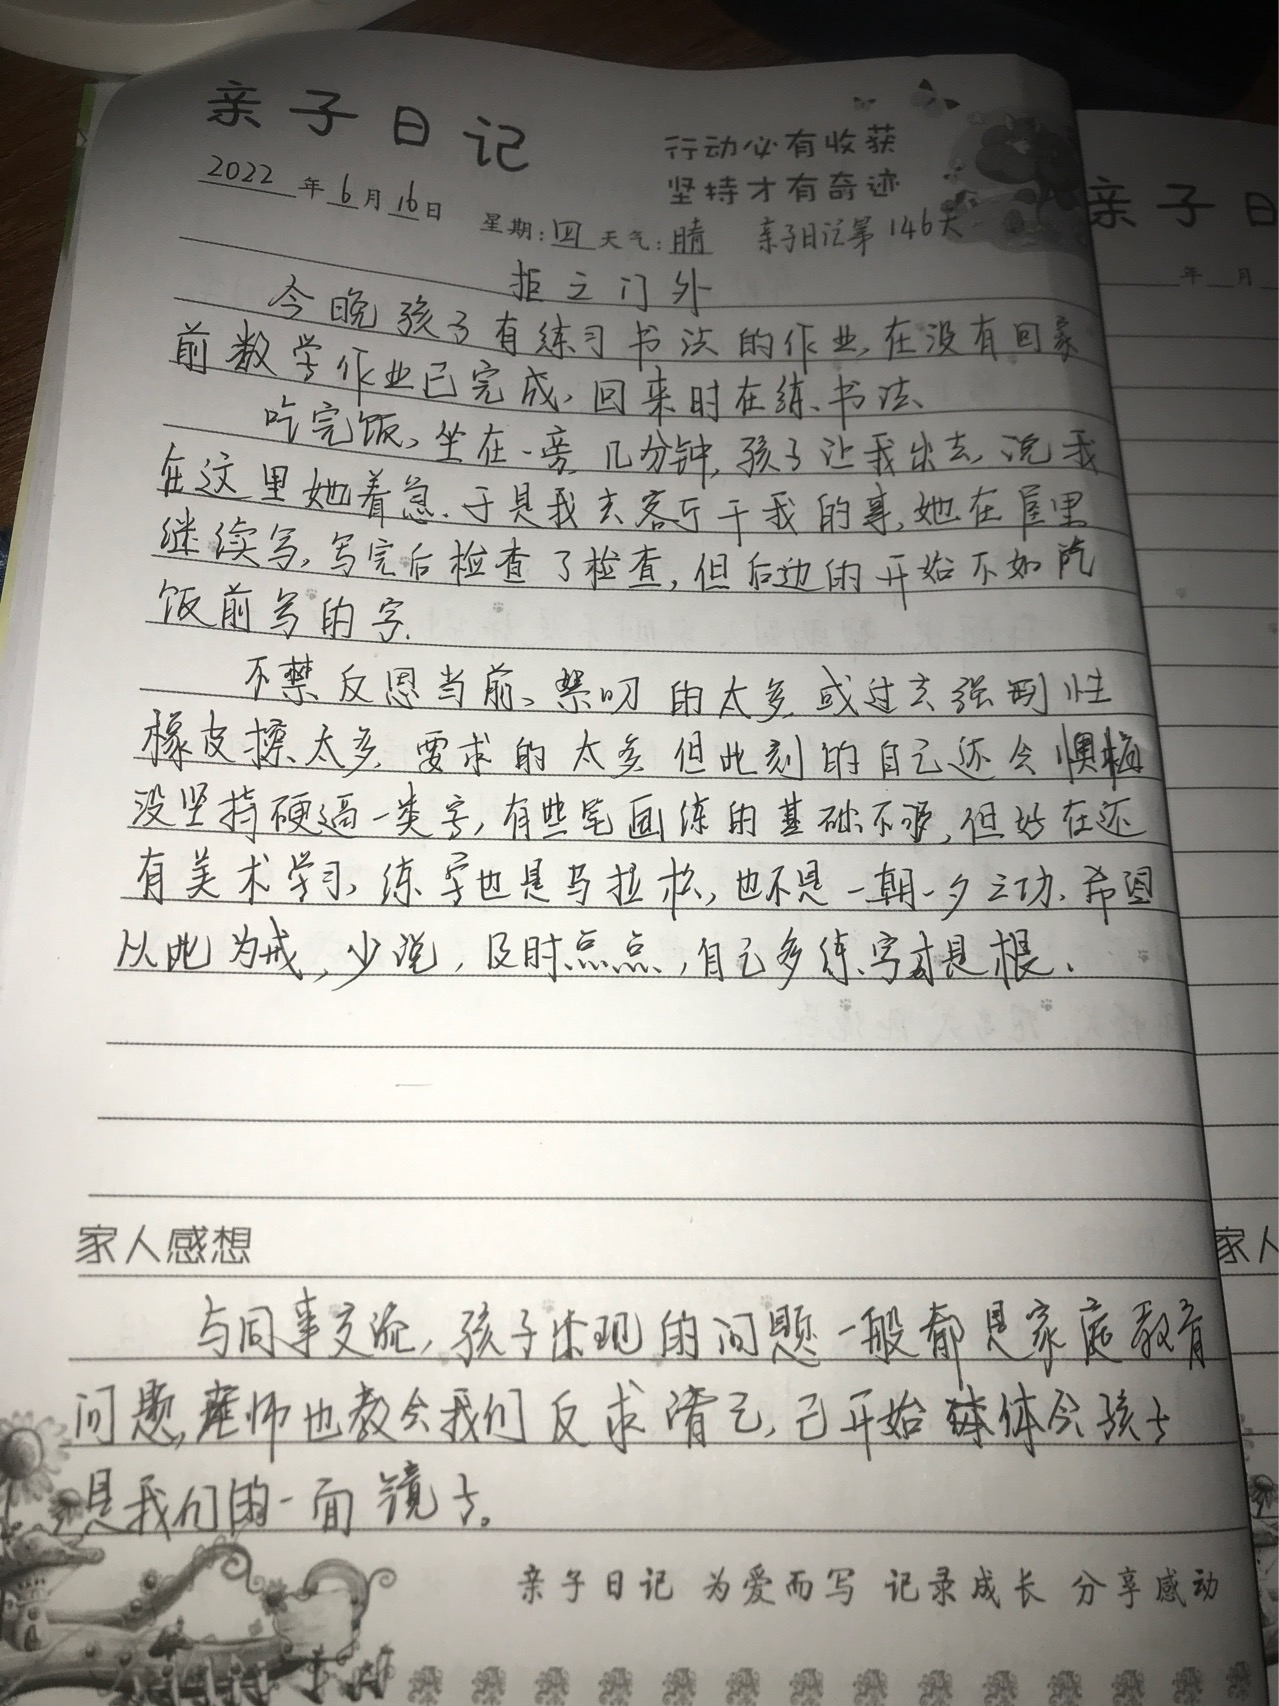 亲子日记
行动必有收获
坚持才有奇迹
2022年6月16日 星期:四 天气:晴 亲子日记第146天
拒之门外
今晚孩子有练习书法的作业,在没有回家
前数学作业已完成,回来时在练书法.
吃完饭,坐在一旁几分钟,孩子让我出去,说我
在这里她着急.于是我去客厅干我的事,她在屋里
继续写,写完后检查了检查,但后边的开始不如吃
饭前写的字.
不禁反思当前、禁叨的太多或过去强制性
橡皮擦太多 要求的太多但此刻的自己还会懊悔
没坚持硬逼一类字,有些笔画练的基础不够,但好在还
有美术学习,练字也是马拉松,也不是一朝一夕之功.希望
从此为戒,少说,及时点点,自己多练字才是根.
家人感想
与同事交流,孩子出现的问题一般都是家庭教育
问题,老师也教会我们反求诸己,己开始体会孩子
是我们的一面镜子。
亲子日记 为爱而写 记录成长 分享感动
亲子日
年 月
家人